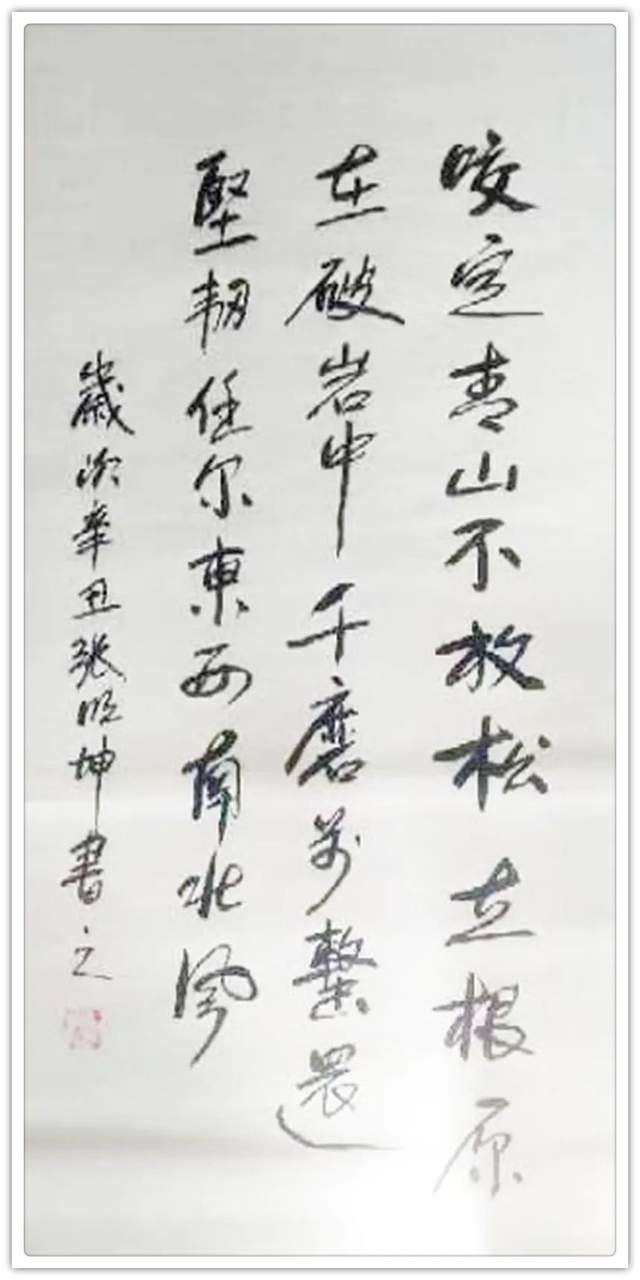 咬定青山不放松立根原
在破岩中千磨万擊還
堅韧任尔東西南北风
歲次辛丑张明坤書之